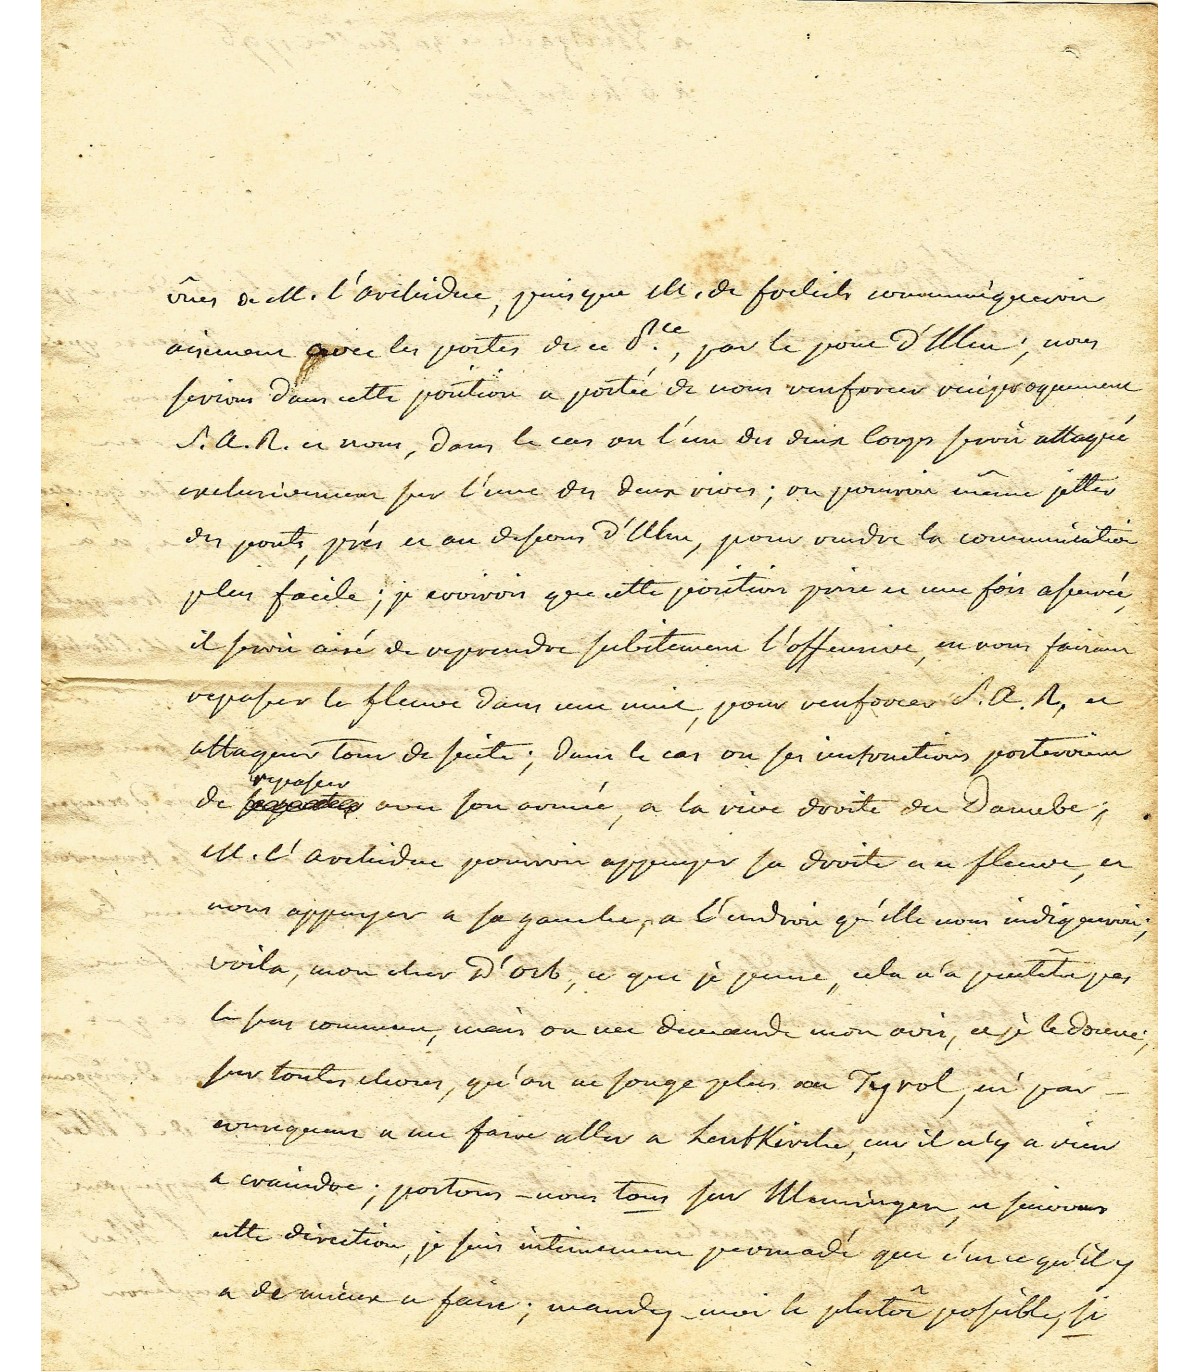 vûes de M. l'archiduc, puisque M. de frelich communiqueroit
aisement avec les postes de ce P.ce, par le pont d'Ulm; nous
serions dans cette position a portée de nous renforcer reciproquement
S.A.R. et nous, dans le cas ou l'un des deux corps seroit attaqué
exclusivement sur l'une des deux rives; on pourroit même jetter
des ponts, près et au dessous d'Ulm, pour rendre la communication
plus facile; je croirois que cette position prise et une fois assurée,
il seroit aisé de reprendre subitement l'offensive, en nous faisant
repasser le fleuve dans une nuit, pour renforcer S.A.R, et
attaquer tout de suite; dans le cas ou ses instructions porteroient
de repasser avec son armée, a la rive droite du Danube;
M. l'archiduc pourroit appuyer sa droite a ce fleuve, et
nous appuyer a sa gauche, a l'endroit qu'elle nous indiqueroit;
voila, mon cher D'ort, ce que je pense, cela n'a peutêtre pas
le sens commun, mais on me demande mon avis, et je le donne;
sur toutes choses, qu'on ne songe plus au Tyrol, ni par
consequent a me faire aller a Leutkirche, car il n'y a rien
a craindre; portons-nous tous sur Memingen, et suivons
cette direction, je suis intimement persuadé que c'est ce qu'il y
a de mieux a faire; mandez-moi le plutôt possible, si